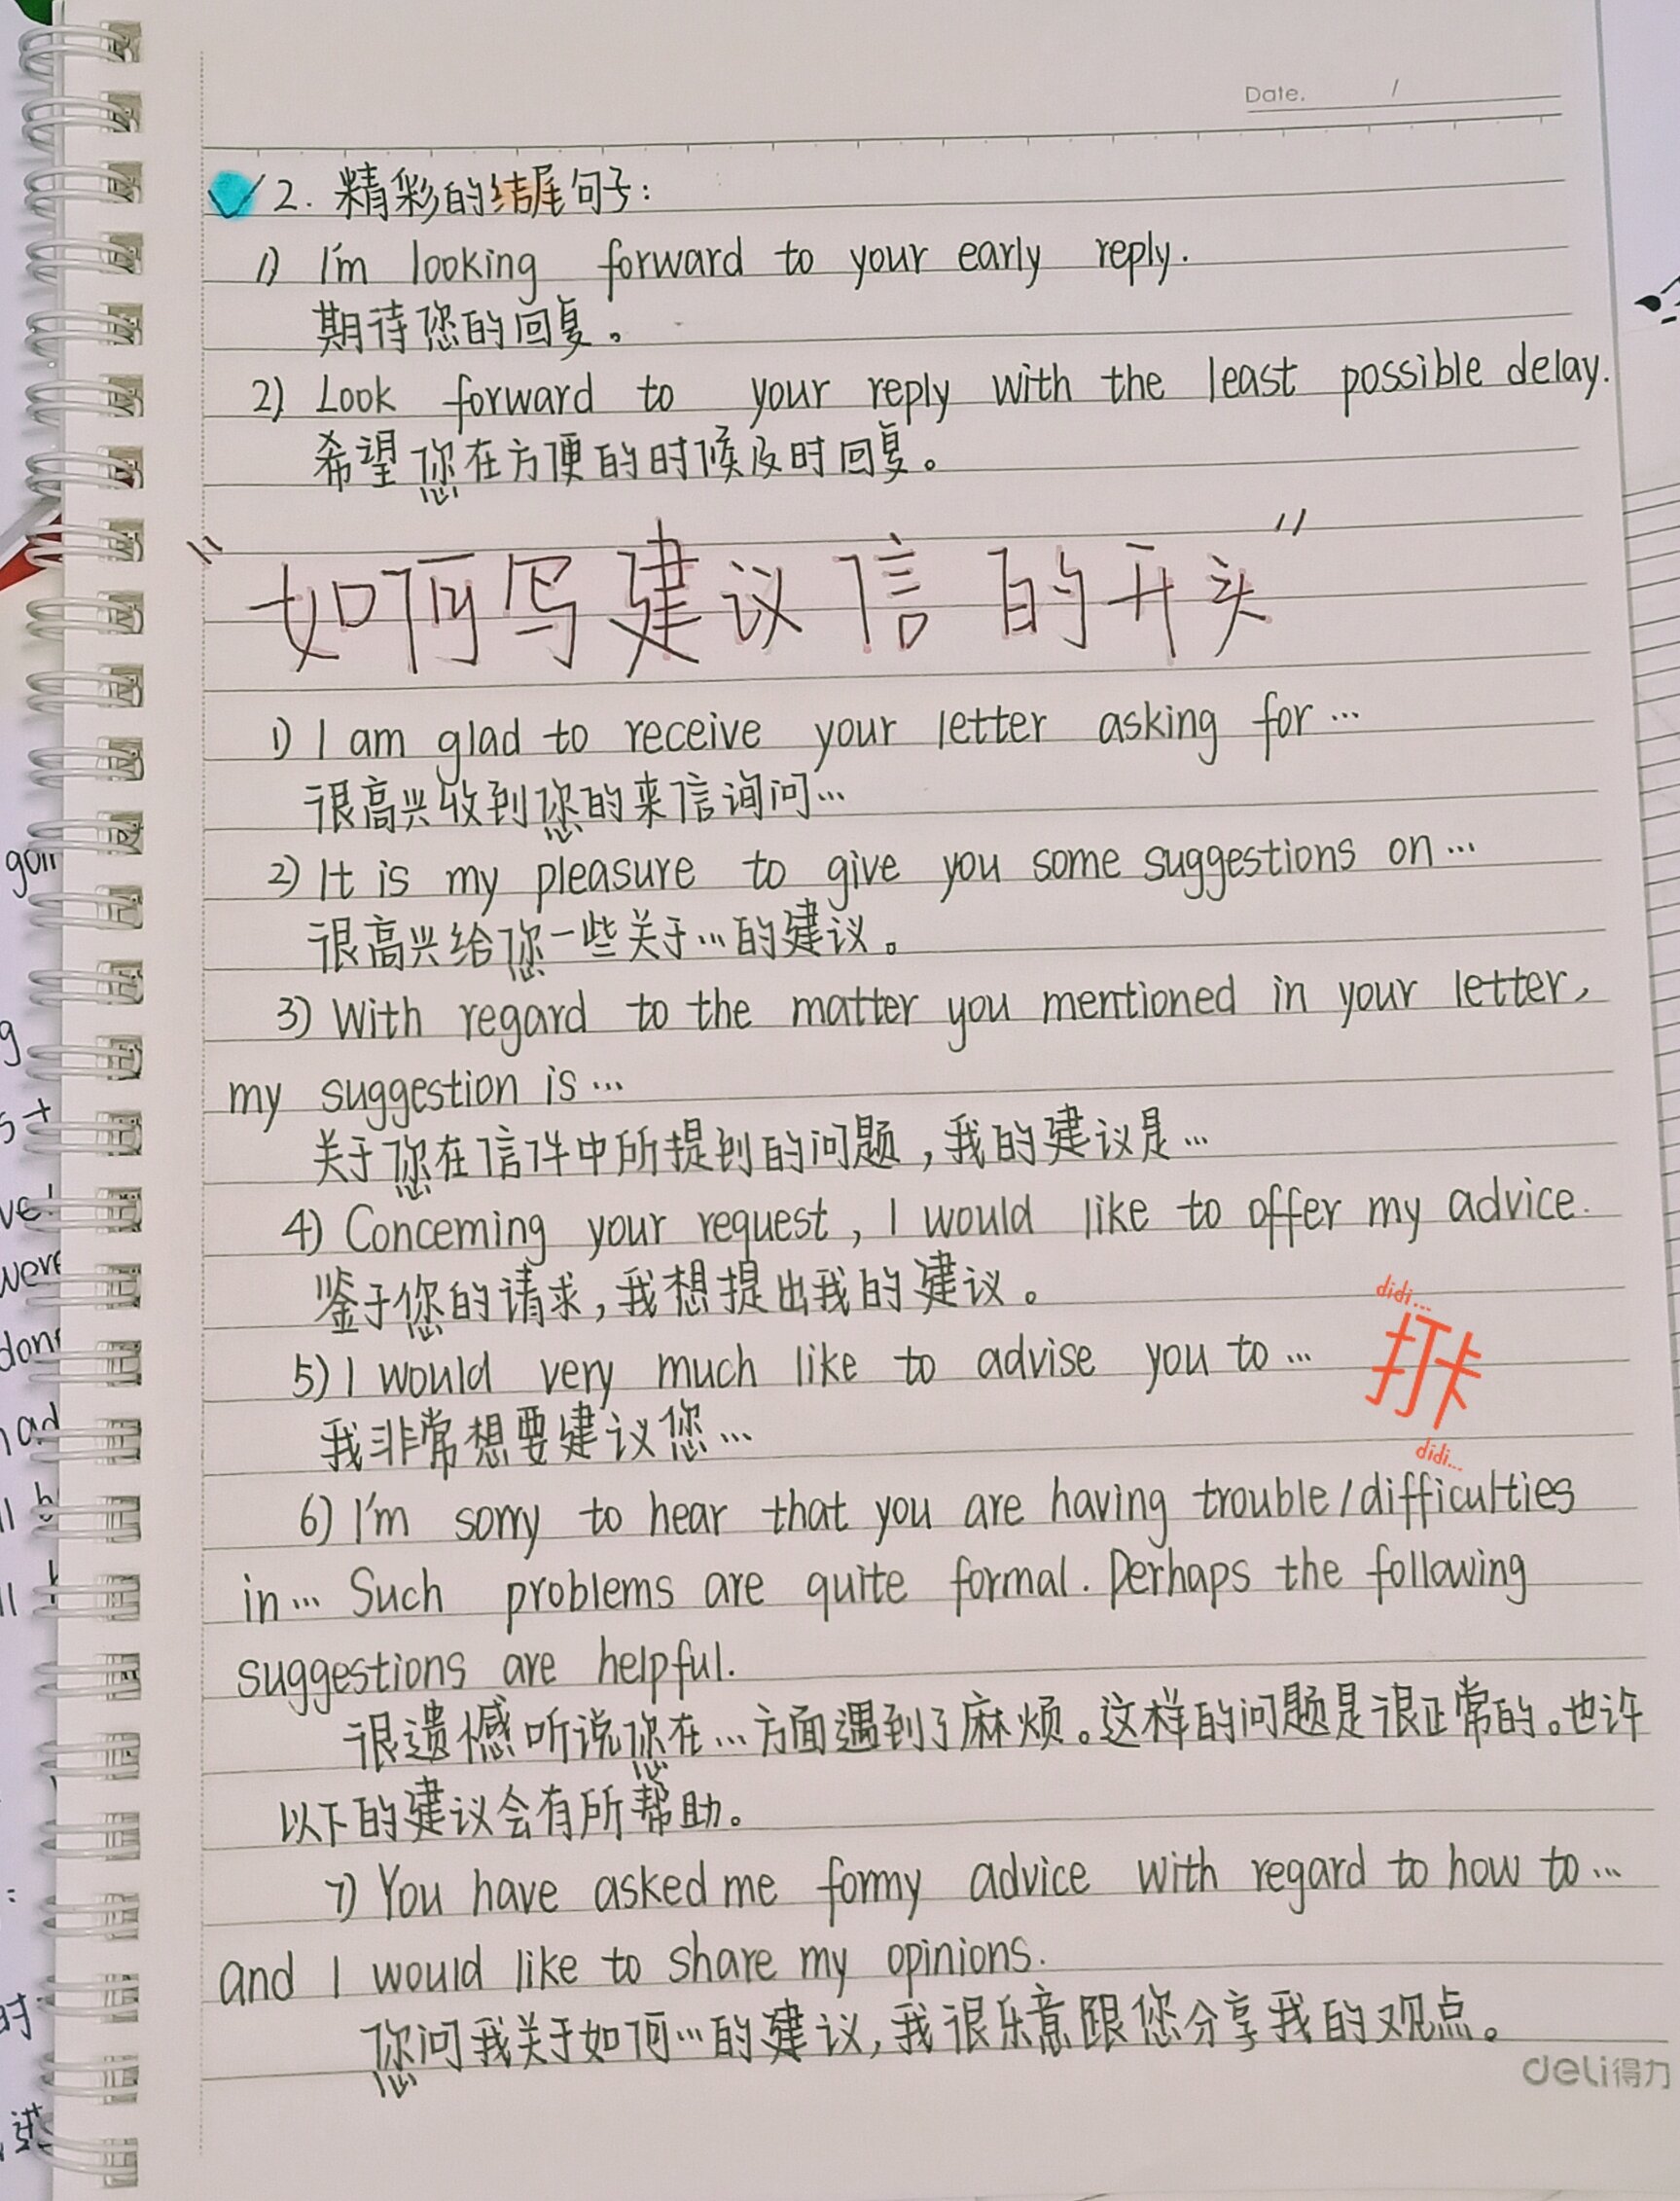 Date. /
2. 精彩的结尾句子:
1) I'm looking forward to your early reply.
期待您的回复。
2) Look forward to your reply with the least possible delay.
希望您在方便的时候及时回复。
"如何写建议信的开头"
1) I am glad to receive your letter asking for…
很高兴收到您的来信询问…
2) It is my pleasure to give you some suggestions on…
很高兴给您一些关于…的建议。
3) With regard to the matter you mentioned in your letter,
my suggestion is…
关于您在信件中所提到的问题,我的建议是…
4) Concerning your request, I would like to offer my advice.
鉴于您的请求,我想提出我的建议。
didi...
打卡
didi...
5) I would very much like to advise you to…
我非常想要建议您…
6) I'm sorry to hear that you are having trouble/difficulties
in… Such problems are quite formal. Perhaps the following
suggestions are helpful.
很遗憾听说您在…方面遇到了麻烦。这样的问题是很正常的。也许
以下的建议会有所帮助。
7) You have asked me formy advice with regard to how to…
and I would like to share my opinions.
您问我关于如何…的建议,我很乐意跟您分享我的观点。
deli得力